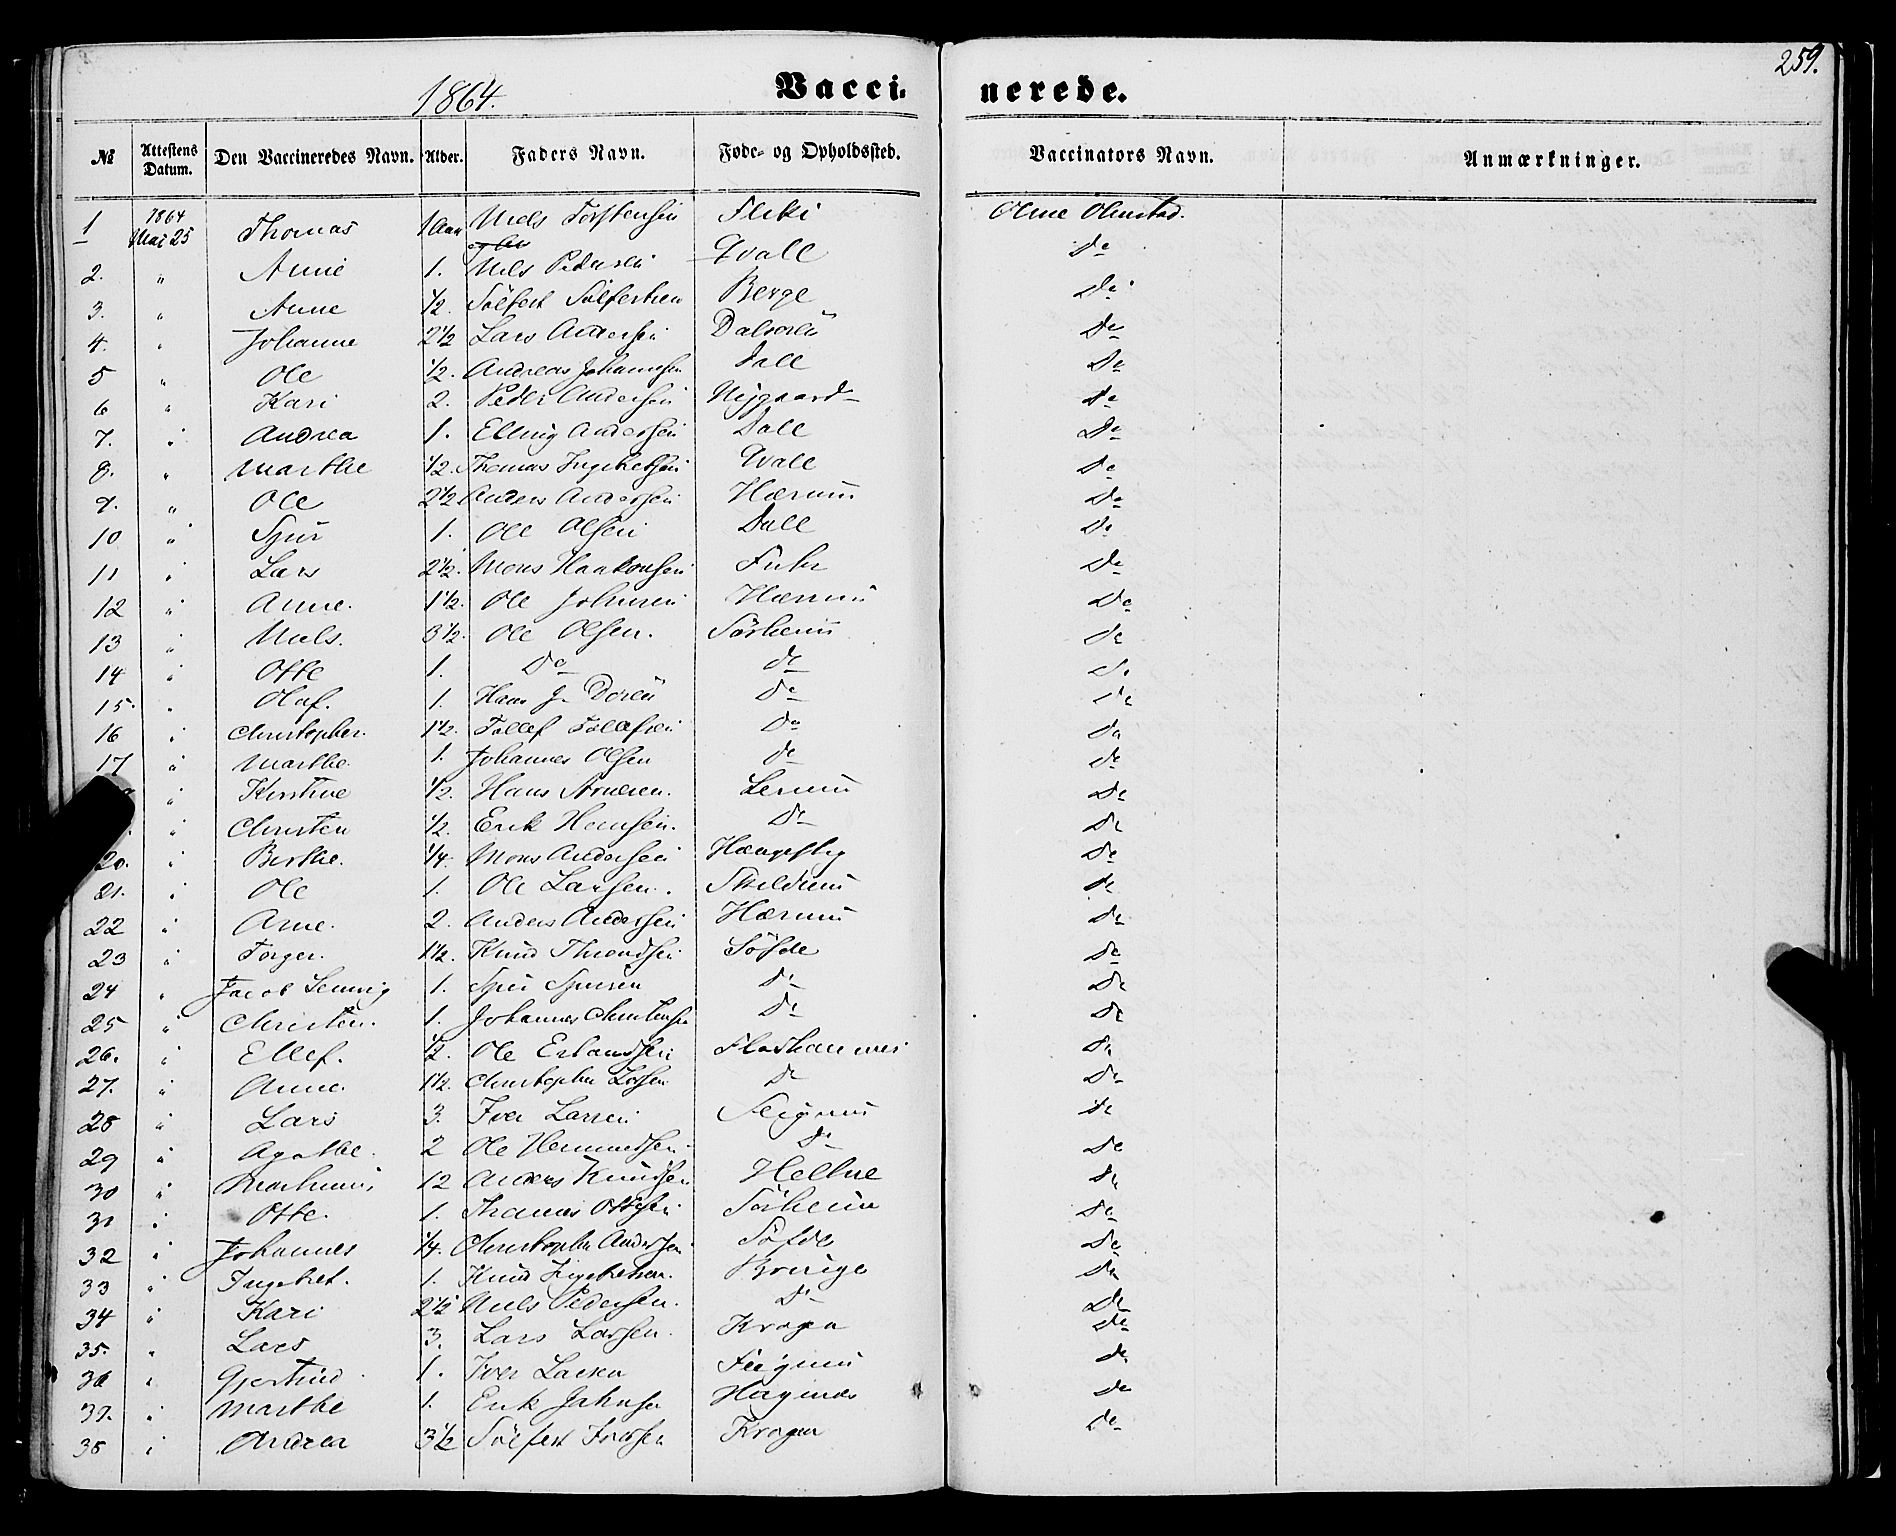 259.
1864. Vacci- nerede.
№ Attestens Datum. Den Vaccineredes Navn. Alder. Faders Navn. Føde- og Opholdssted. Vaccinators Navn. Anmærkninger.
1 1864 Mai 25 Thomas 1 Aar Niels Torstensen Fleki Oline Olmstad.
2. " Anne 1. Niels Pedersen Qvale Do
3. " Anne 1/2. Sølfest Sølfestsen Berge Do
4. " Johanne 2 1/2 Lars Andersen Dalsøren Do
5 " Ole 1/2. Andreas Johannesen Dale Do
6 " Kari 2. Peder Andersen Nygaard Do
7. " Andrea 1. Elling Andersen Dale Do
8. " Marthe 1/2. Thomas Ingebretsen Qvale Do
9. " Ole 2 1/2 Anders Andersen Hærum Do
10 " Sjur 1. Ole Olsen Dale Do
11 " Lars 2 1/2. Mons Haakonsen Fuhr Do
12 " Anne. 1 1/2. Ole Johnsen Hærum Do
13 " Niels. 3 1/2. Ole Olsen. Sørheim Do
14 " Otte 1. Do do Do
15. " Olaf. 1. Hans J. Døsen Do Do
16 " Christopher. 1 1/2. Tollef Tollefsen Do Do
17 " Marthe. 1. Johannes Olsen do do
" Kirstine 1/2. Hans Arnesen. Lerum Do
" Christen 1/2. Erik Hansen. Do Do
20. " Berthe. 1/4. Mons Andersen Haugsteg Do
21. " Ole 1. Ole Larsen. Skildrum do
22 " Arne. 2. Anders Andersen Hærum Do
23 " Torger. 1 1/2. Knud Throndsen Søfde Do
24 " Jacob 1. Sjur Sjursen Do Do
25 " Christen. 1. Johannes Christensen Do Do
26. " Ellef. 1/2. Ole Erlandsen Do
27. " Anne. 1 1/2. Christopher Do Do
28 " Lars 3. Iver Larsen Flugum Do
29 " Agathe. 2 Ole Do Do
30 " 12 Anders Knudsen Heltne Do
31 " Otte. 1. Thomas Ottesen Sørheim Do
32 " Johannes 1/4. Christopher Andersen Søfde Do
33 " Ingebret. 1. Knud Ingebretsen. Bringe Do
34 " Kari 2 1/2 Niels Pedersen. Do Do
35. " Lars 3. Lars Larsen. Krogen Do
36 " Gjertrud 1. Iver Larsen Flugum do
37. " Marthe 1. Erik Johnsen Do
38 " Andrea 3 1/2 Sølfest Iversen Krogen Do